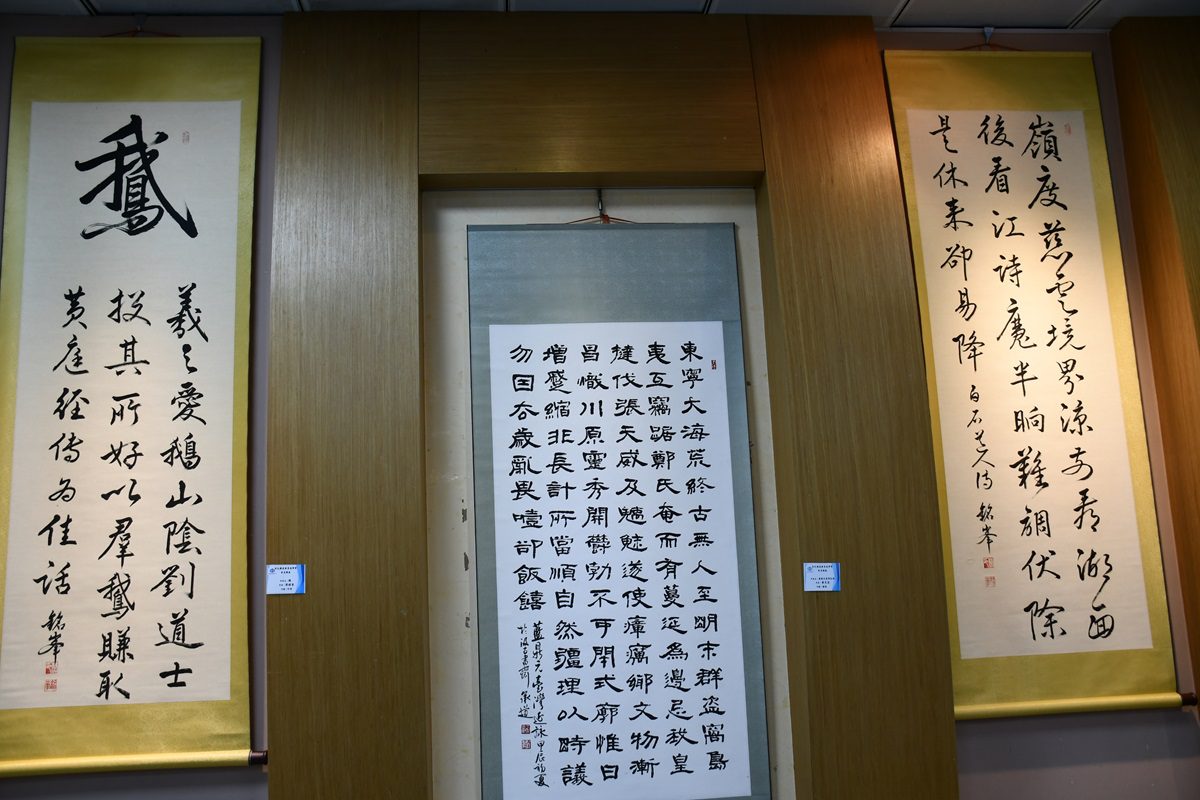 鵝
羲之愛鵝山陰劉道士
投其所好以羣鵝賺取
黃庭經傳為佳話 銘峯
東寧大海荒終古無人至明末群盜窩島
夷互竊踞鄭氏奄而有蔓延為邊忌我皇
撻伐張天威及魑魅遂使瘴癘鄉文物漸
昌熾川原靈秀開欝勃不可閉式廓惟日
增蹙縮非長計所當順自然疆理以時議
勿因吞歲亂畏噎卻飯饎
藍鼎元臺灣近詠甲辰初夏
嶺度慈雲境界涼前看湖
後看江詩魔半晌難調伏除
是休来卻易降 白石 銘峯